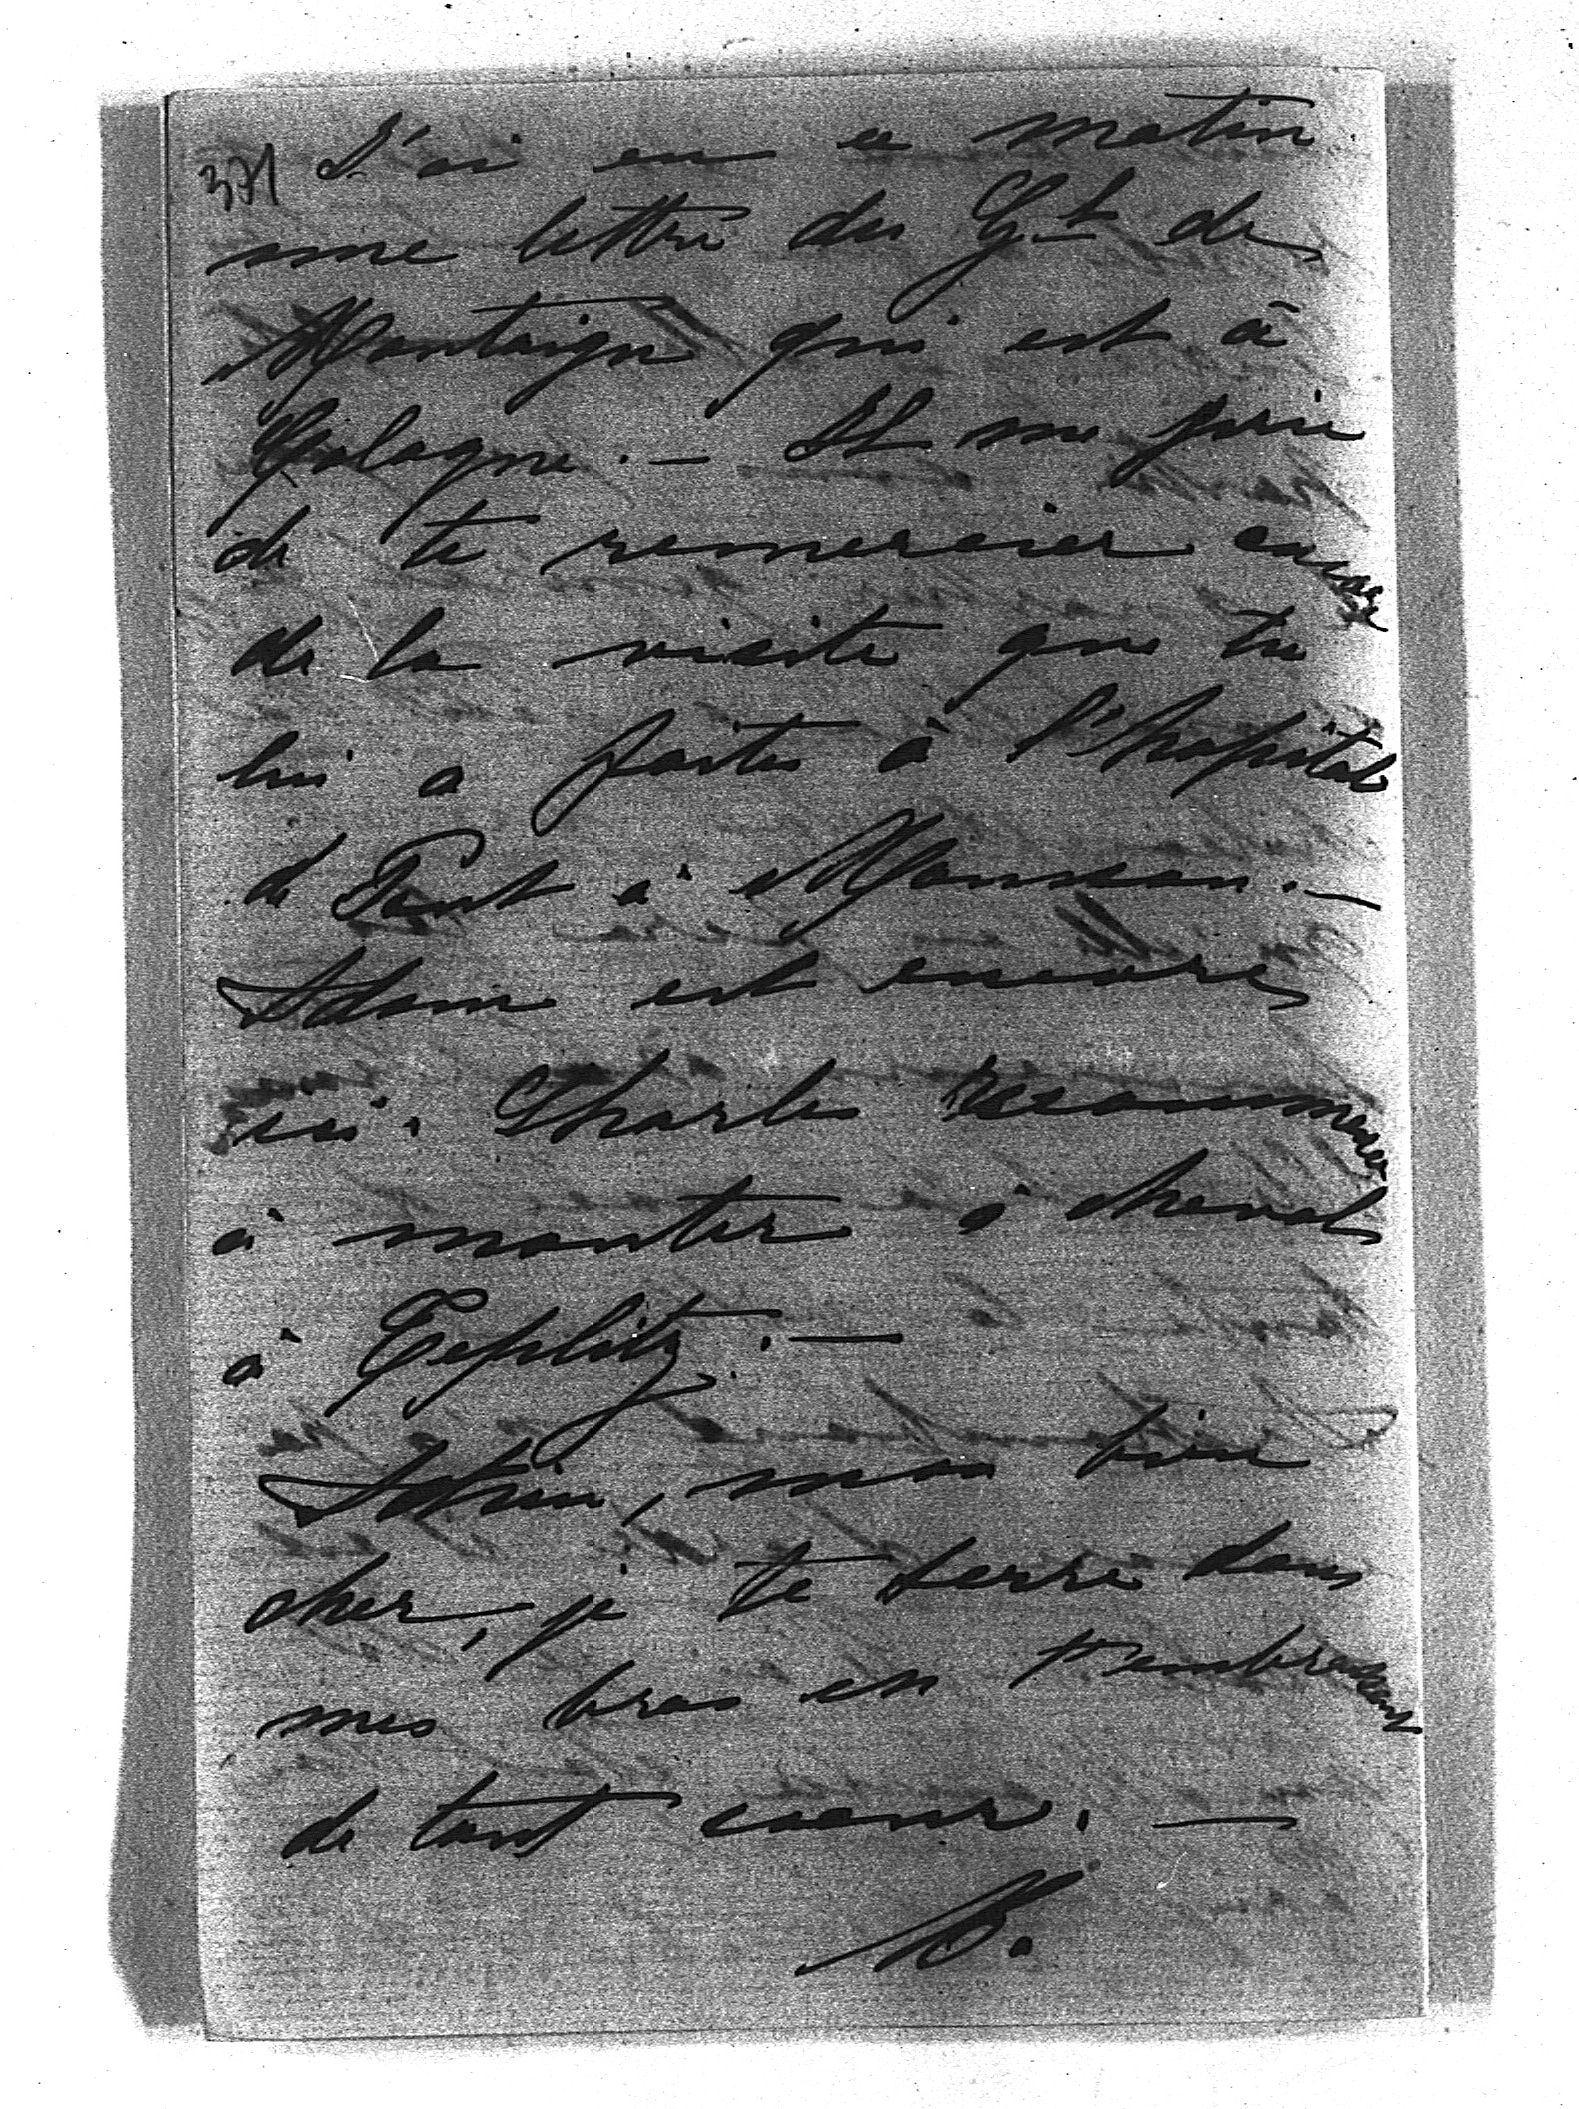 371 J'ai eu ce matin
une lettre du Gl de
Montaigu qui est à
Cologne. — Il me prie
de te remercier encore
de la visite que tu
lui a faite à l'hopital
de Pont à Mousson. —
Adam est encore
ici. Charles recommence
à monter à cheval
à Teplitz. —
Adieu, mon bien
cher, je te serre dans
mes bras en t'embrassant
de tout coeur. —